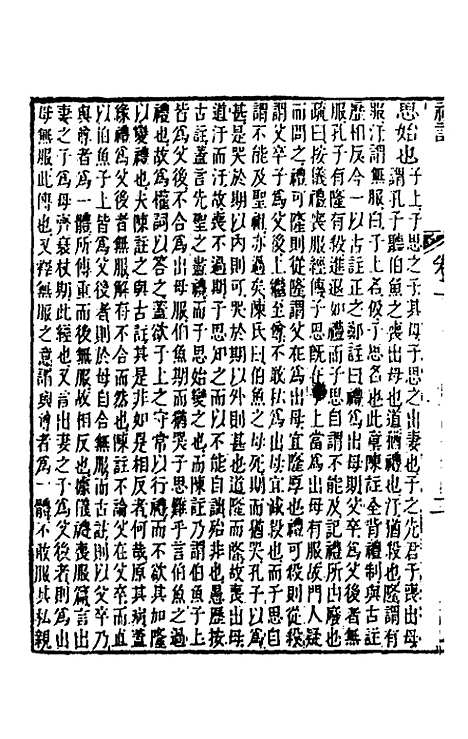 思始也
子上子思之子其母子思之出妻也子之先君子喪出母
謂孔子聽伯魚之喪出母也道猶禮也汙猶殺也隆謂有
服汙謂無服白子上名伋子思名也此章陳註全背禮制與古註
歷相反今一以古註正之鄭註曰禮爲出母期父卒爲父後者無
服孔子有隆有殺進退如禮而子思自謂不能及記禮所由廢也
疏曰按儀禮喪服經傳子思既在上當爲出母有服故門人疑
而問之禮可隆則從隆謂父在爲出母宜隆厚也禮可殺則從殺
謂父卒子爲父後上繼至尊不敢私爲出母宜減殺而子思自
謂不能及聖祖亦過矣陳氏曰伯魚之母死期而猶哭孔子以爲
甚是哭於期以內則可哭於期以外則甚也道隆而隆故喪出母
道汙而汙故不喪子上子思知之而以不能自謙殆非也愚歷按
古註蓋言先聖之盡禮而子思始變之也而陳註乃謂伯魚子上
皆爲父後不合爲出母服伯魚期而猶哭子思難乎言伯魚之過
禮也故爲權詞以答之蓋欲子上之守常以行禮而不欲其加隆
以變禮也夫陳註之與古註其是非如是相反者何哉原其病蓋
緣禮爲父後者無服解有不合而然也陳註不論父在父卒而直
以伯魚子上皆爲父後者則於母自合無服而古註則以父卒乃
與尊者爲一體所傳重而後無服故相反也儀禮喪服篇言出
妻之子爲母齊衰杖期此經也又言出妻之子爲父後者則爲出
母無服此傳也又釋無服之意謂與尊者爲一體不敢服其私親